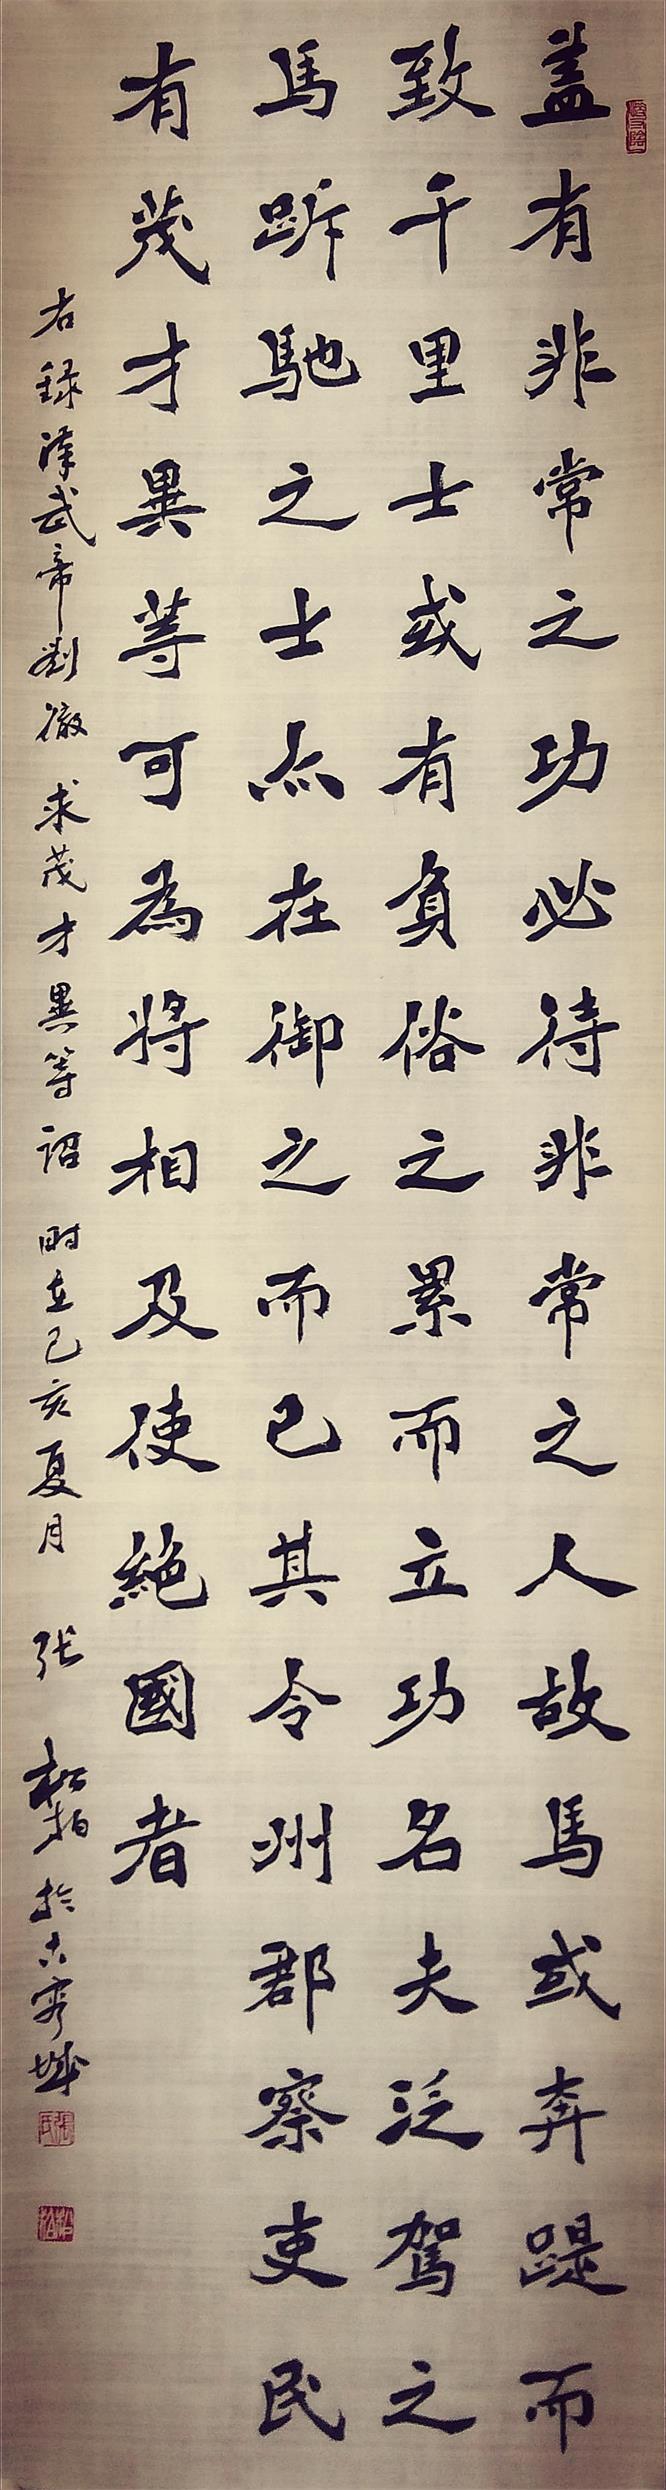 盖有非常之功必待非常之人故馬或奔踶而
致千里士或有負俗之累而立功名夫泛駕之
馬跅馳之士亦在御之而已其令州郡察吏民
有茂才異等可為將相及使絕國者
右録漢武帝劉徹求茂才異等詔 時在己亥夏月 張松柏於古寧城